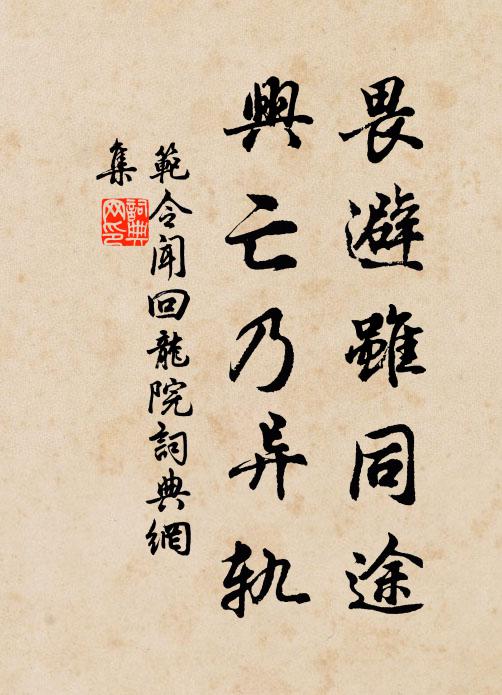 畏避雖同途
興亡乃异轨
範令聞回龍院詞典網
集
詞典
网印